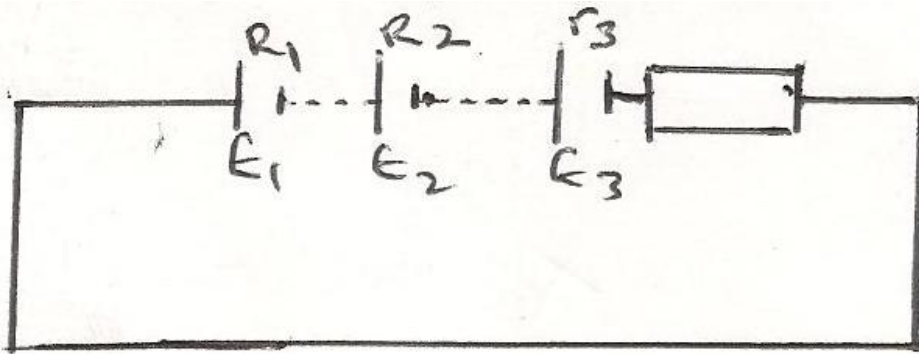 R1 R2 r3
E1 E2 E3